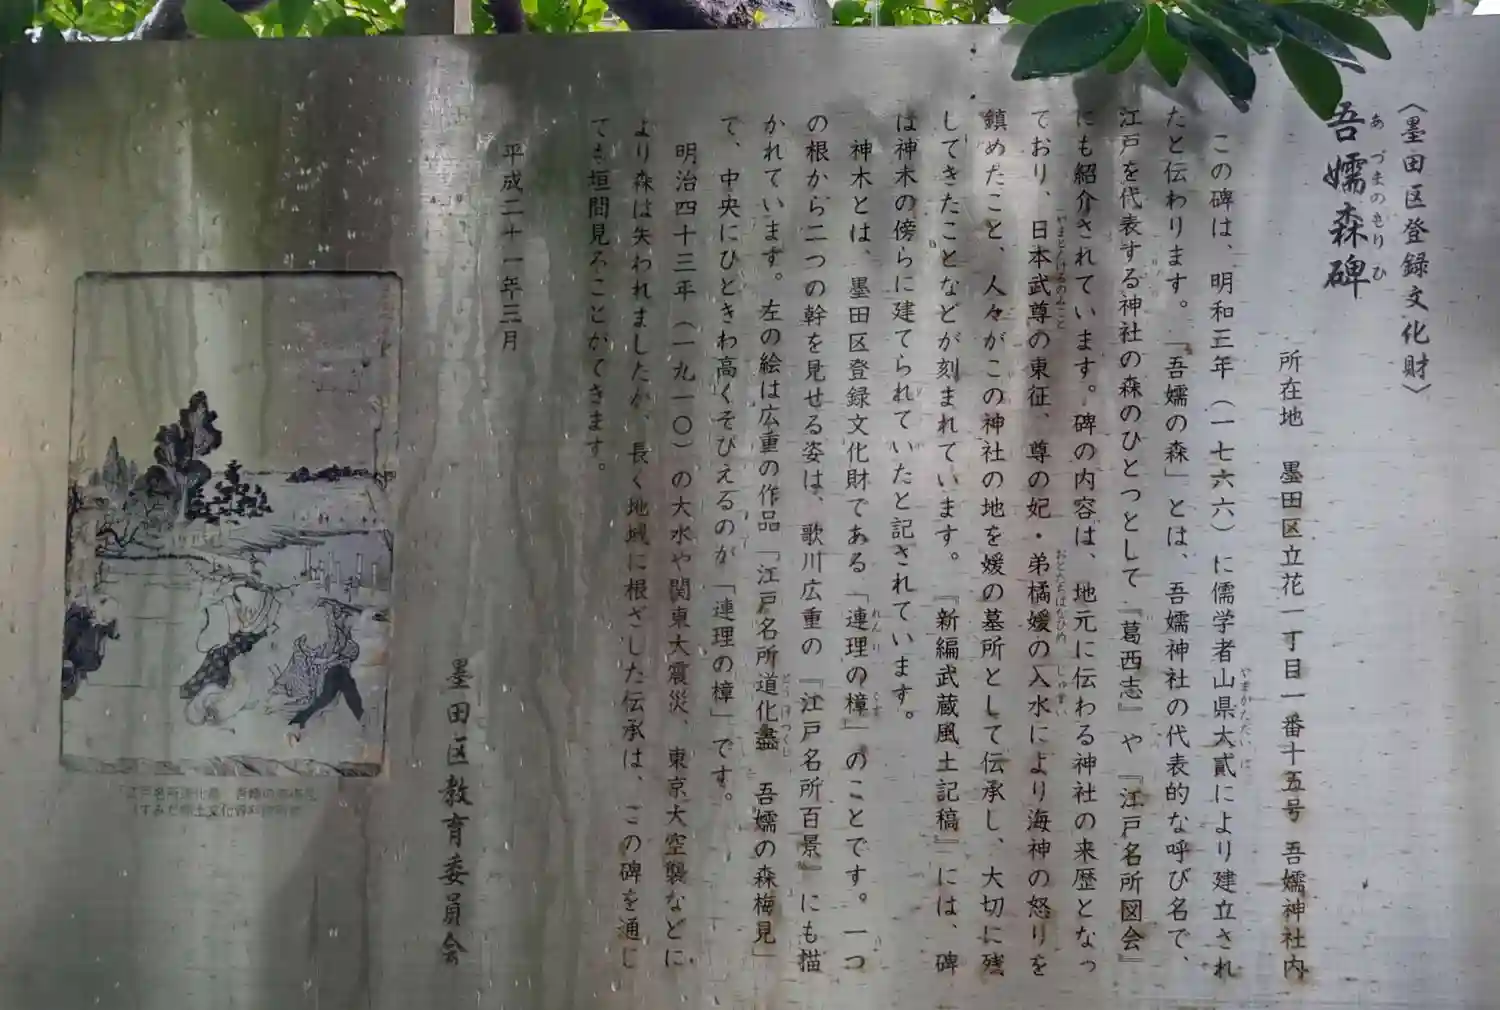 〈墨田区登録文化財〉
あづまのもりひ
吾嬬森碑
所在地 墨田区立花一丁目一番十五号 吾嬬神社内
この碑は、明和三年（一七六六）に儒学者山県大貳により建立され
たと伝わります。「吾嬬の森」とは、吾嬬神社の代表的な呼び名で、
江戸を代表する神社の森のひとつとして『葛西志』や『江戸名所図会』
にも紹介されています。碑の内容は、地元に伝わる神社の来歴となっ
ており、日本武尊の東征、尊の妃・弟橘媛の入水により海神の怒りを
鎮めたこと、人々がこの神社の地を媛の墓所として伝承し、大切に残
してきたことなどが刻まれています。『新編武蔵風土記稿』には、碑
は神木の傍らに建てられていたと記されています。
神木とは、墨田区登録文化財である「連理の樟」のことです。一つ
の根から二つの幹を見せる姿は、歌川広重の『江戸名所百景』にも描
かれています。左の絵は広重の作品『江戸名所道化盡 吾嬬の森梅見』
で、中央にひときわ高くそびえるのが「連理の樟」です。
明治四十三年（一九一〇）の大水や関東大震災、東京大空襲などに
より森は失われましたが、長く地域に根ざした伝承は、この碑を通し
ても垣間見ることができます。
平成二十一年三月
墨田区教育委員会